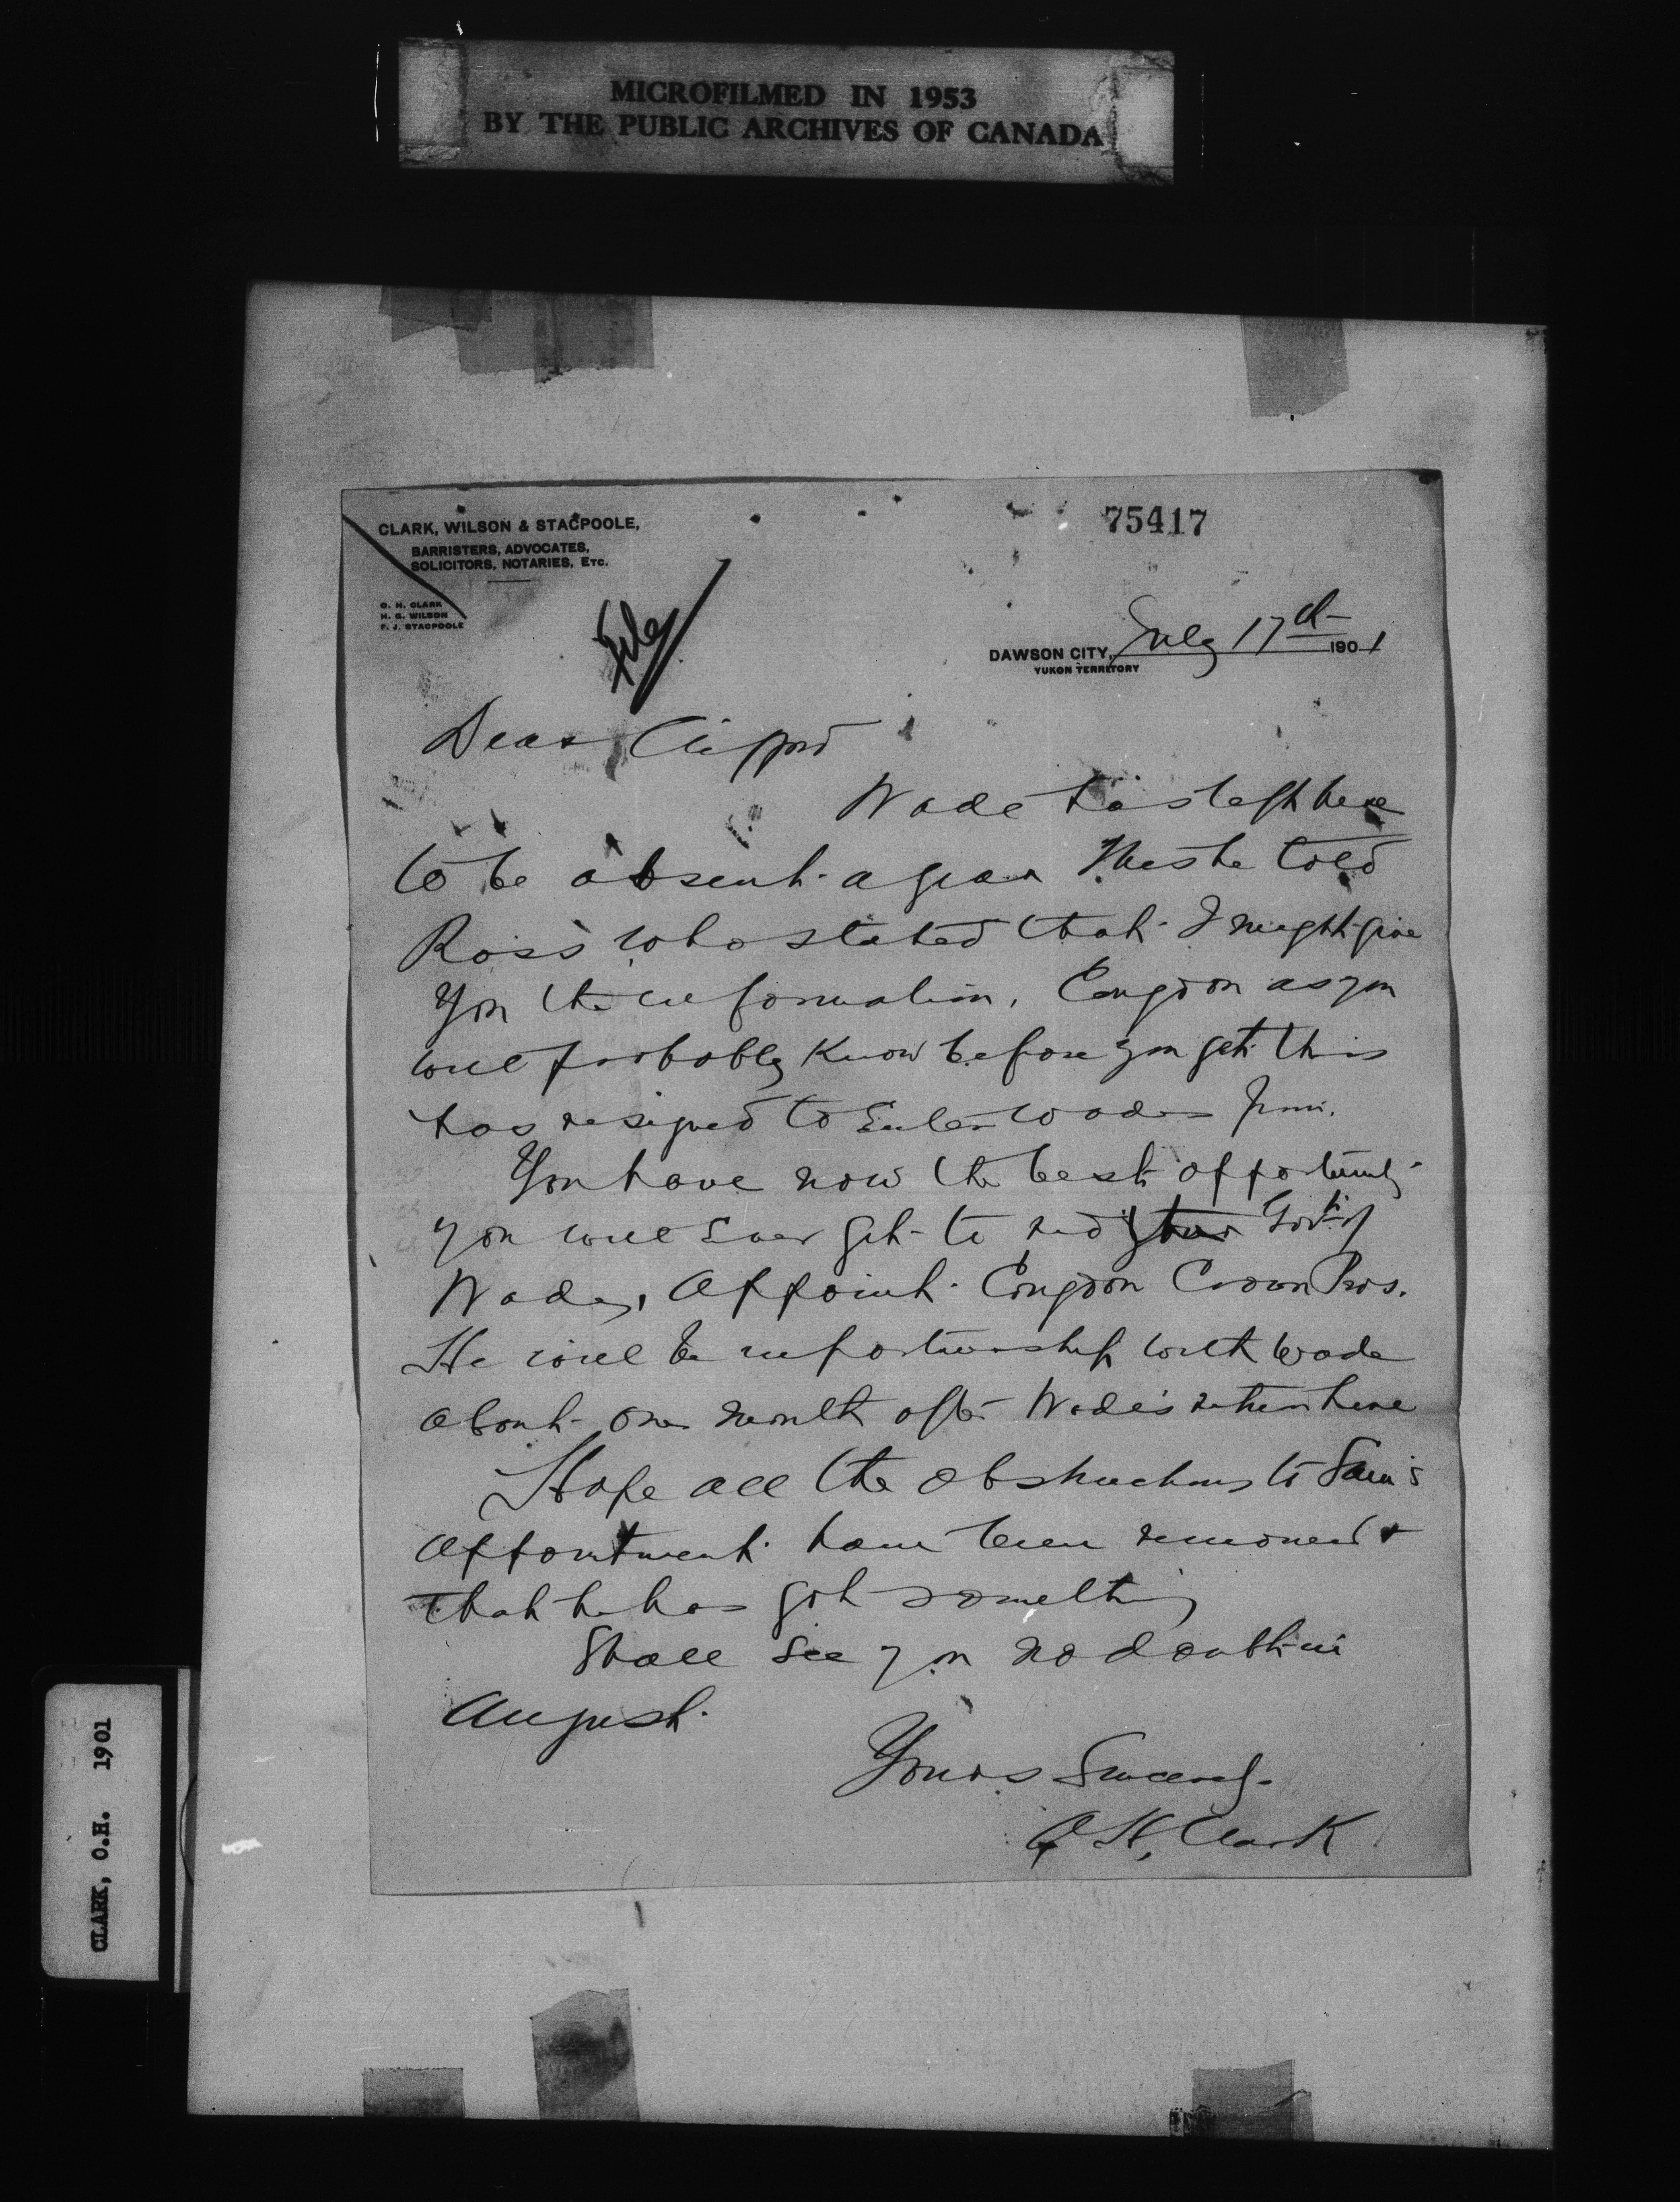 MICROFILMED IN 1953
BY THE PUBLIC ARCHIVES OF CANADA
CLARK, WILSON & STACPOOLE,
BARRISTERS, ADVOCATES,
SOLICITORS, NOTARIES, ETC.
O. H. CLARK
H. G. WILSON
F. J. STACPOOLE
75417
File
DAWSON CITY, July 17th 1901
YUKON TERRITORY
Dear Clifford
Wade has left here
to be absent a year This he told
Ross who stated that I might give
you the information. Congdon as you
will probably know before you get this
has resigned to enter Wades firm.
You have now the best opportunity
you will ever get to rid Govt of
Wade, Appoint Congdon Crown Pros.
He will be in partnership with Wade
about one month after Wade's return here
Hope all the obstructions to Sam's
appointment have been removed &
that he has got something
Shall see you no doubt in
August.
Yours Sincerely
O H, Clark
CLARK, O.H. 1901